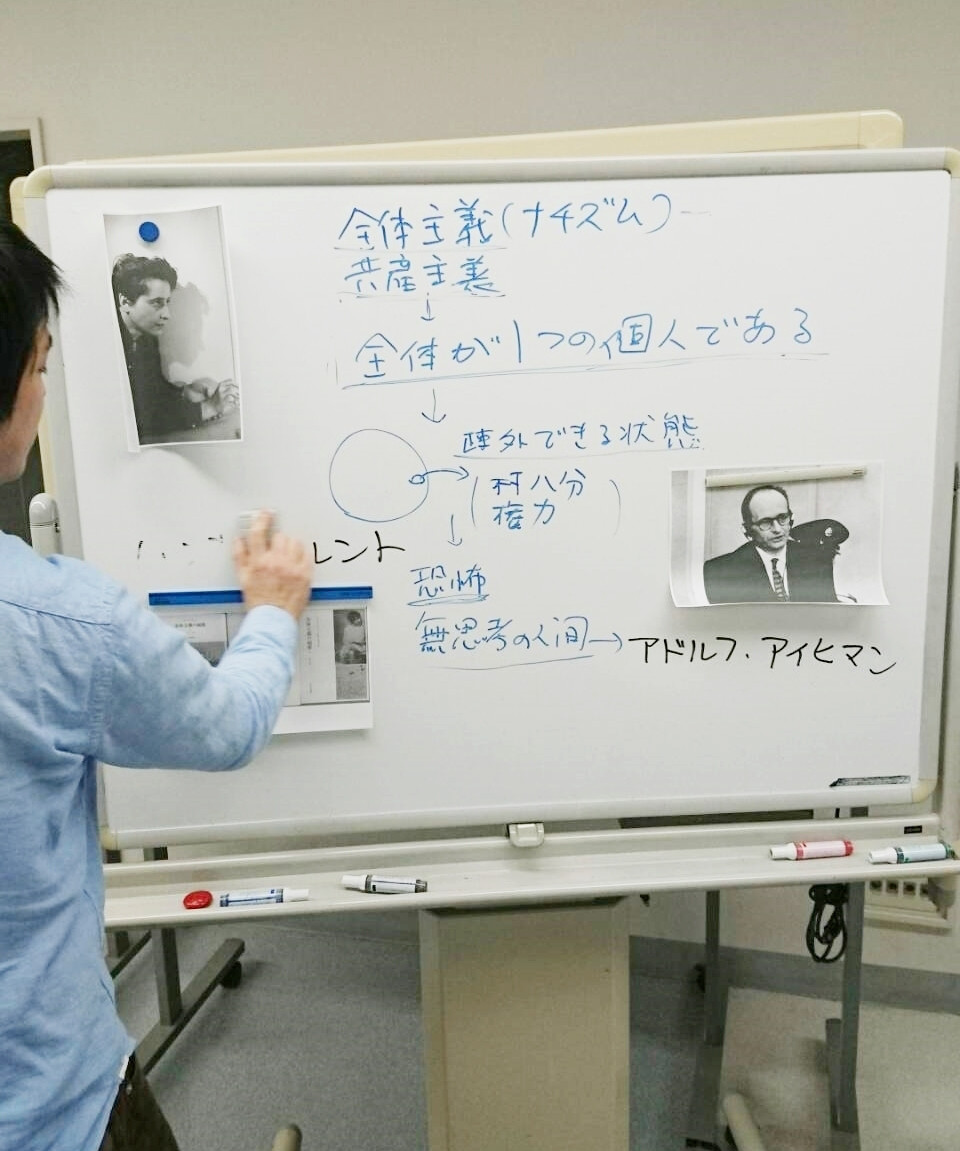 全体主義(ナチズム)
共産主義
↓
全体が1つの個人である
↓
疎外できる状態
(村八分
権力)
↓
レント
恐怖
無思考の人間→アドルフ・アイヒマン